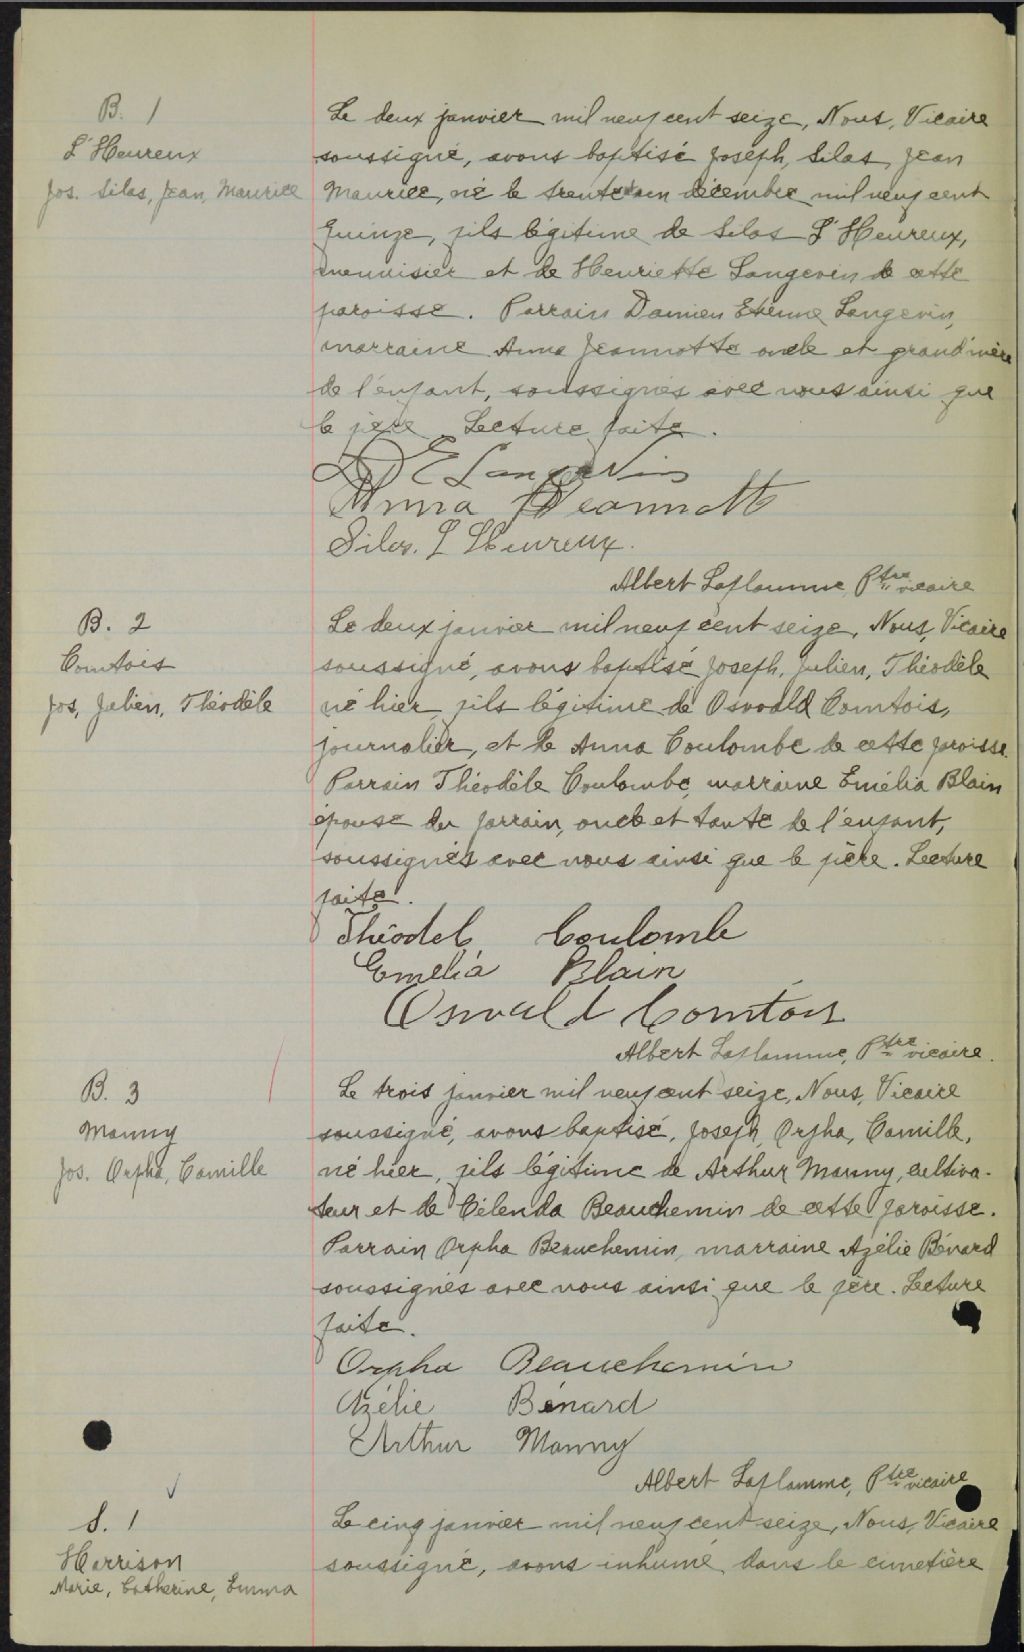 B. 1
L'Heureux
Jos. Silas, Jean, Maurice
Le deux janvier mil neuf cent seize, Nous, Vicaire
soussigné, avons baptisé Joseph, Silas, Jean
Maurice, né le trente et un décembre mil neuf cent
quinze, fils légitime de Silas L'Heureux,
menuisier et de Henriette Langevin de cette
paroisse. Parrain Damien Etienne Langevin,
marraine Anna Jeannotte oncle et grand'mère
de l'enfant, soussignés avec nous ainsi que
le père. Lecture faite.
D E Langevin
Anna Jeannotte
Silas. L'Heureux.
Albert Laflamme, Ptre vicaire
B. 2
Comtois
Jos, Julien, Théodèle
Le deux janvier mil neuf cent seize, Nous, Vicaire
soussigné, avons baptisé Joseph, Julien, Théodèle
né hier, fils légitime de Oswald Comtois,
journalier, et de Anna Coulombe de cette paroisse.
Parrain Théodèle Coulombe, marraine Emélia Blain
épouse du parrain, oncle et tante de l'enfant,
soussignés avec nous ainsi que le père. Lecture
faite.
Théodel Coulombe
Emélia Blain
Oswald Comtois
Albert Laflamme, Ptre vicaire.
B. 3
Manny
Jos. Orpha, Camille
Le trois janvier mil neuf cent seize, Nous, Vicaire
soussigné, avons baptisé, Joseph, Orpha, Camille,
né hier, fils légitime de Arthur Manny, cultiva-
teur et de Célenda Beauchemin de cette paroisse.
Parrain Orpha Beauchemin, marraine Azélie Bénard
soussignés avec nous ainsi que le père. Lecture
faite.
Orpha Beauchemin
Azélie Bénard
Arthur Manny
Albert Laflamme, Ptre vicaire
S. 1
Harrison
Marie, Catherine, Emma
Le cinq janvier mil neuf cent seize, Nous, Vicaire
soussigné, avons inhumé dans le cimetière